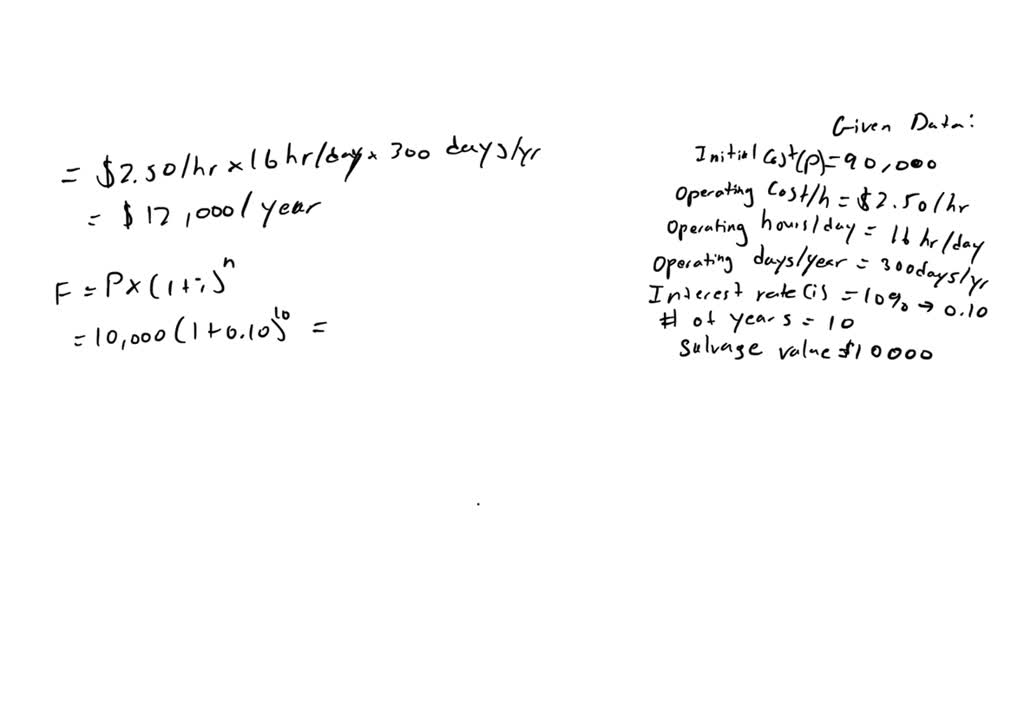 = $2.50/hr x 16 hr/day x 300 days/yr
= $12,000/year
F = P x (1+i)^n
= 10,000 (1+0.10)^10 =
Given Data:
Initial Cost (P) = 90,000
Operating Cost/h = $2.50/hr
Operating hours/day = 16 hr/day
Operating days/year = 300days/yr
Interest rate (i) = 10% → 0.10
# of years = 10
Salvage value $10000